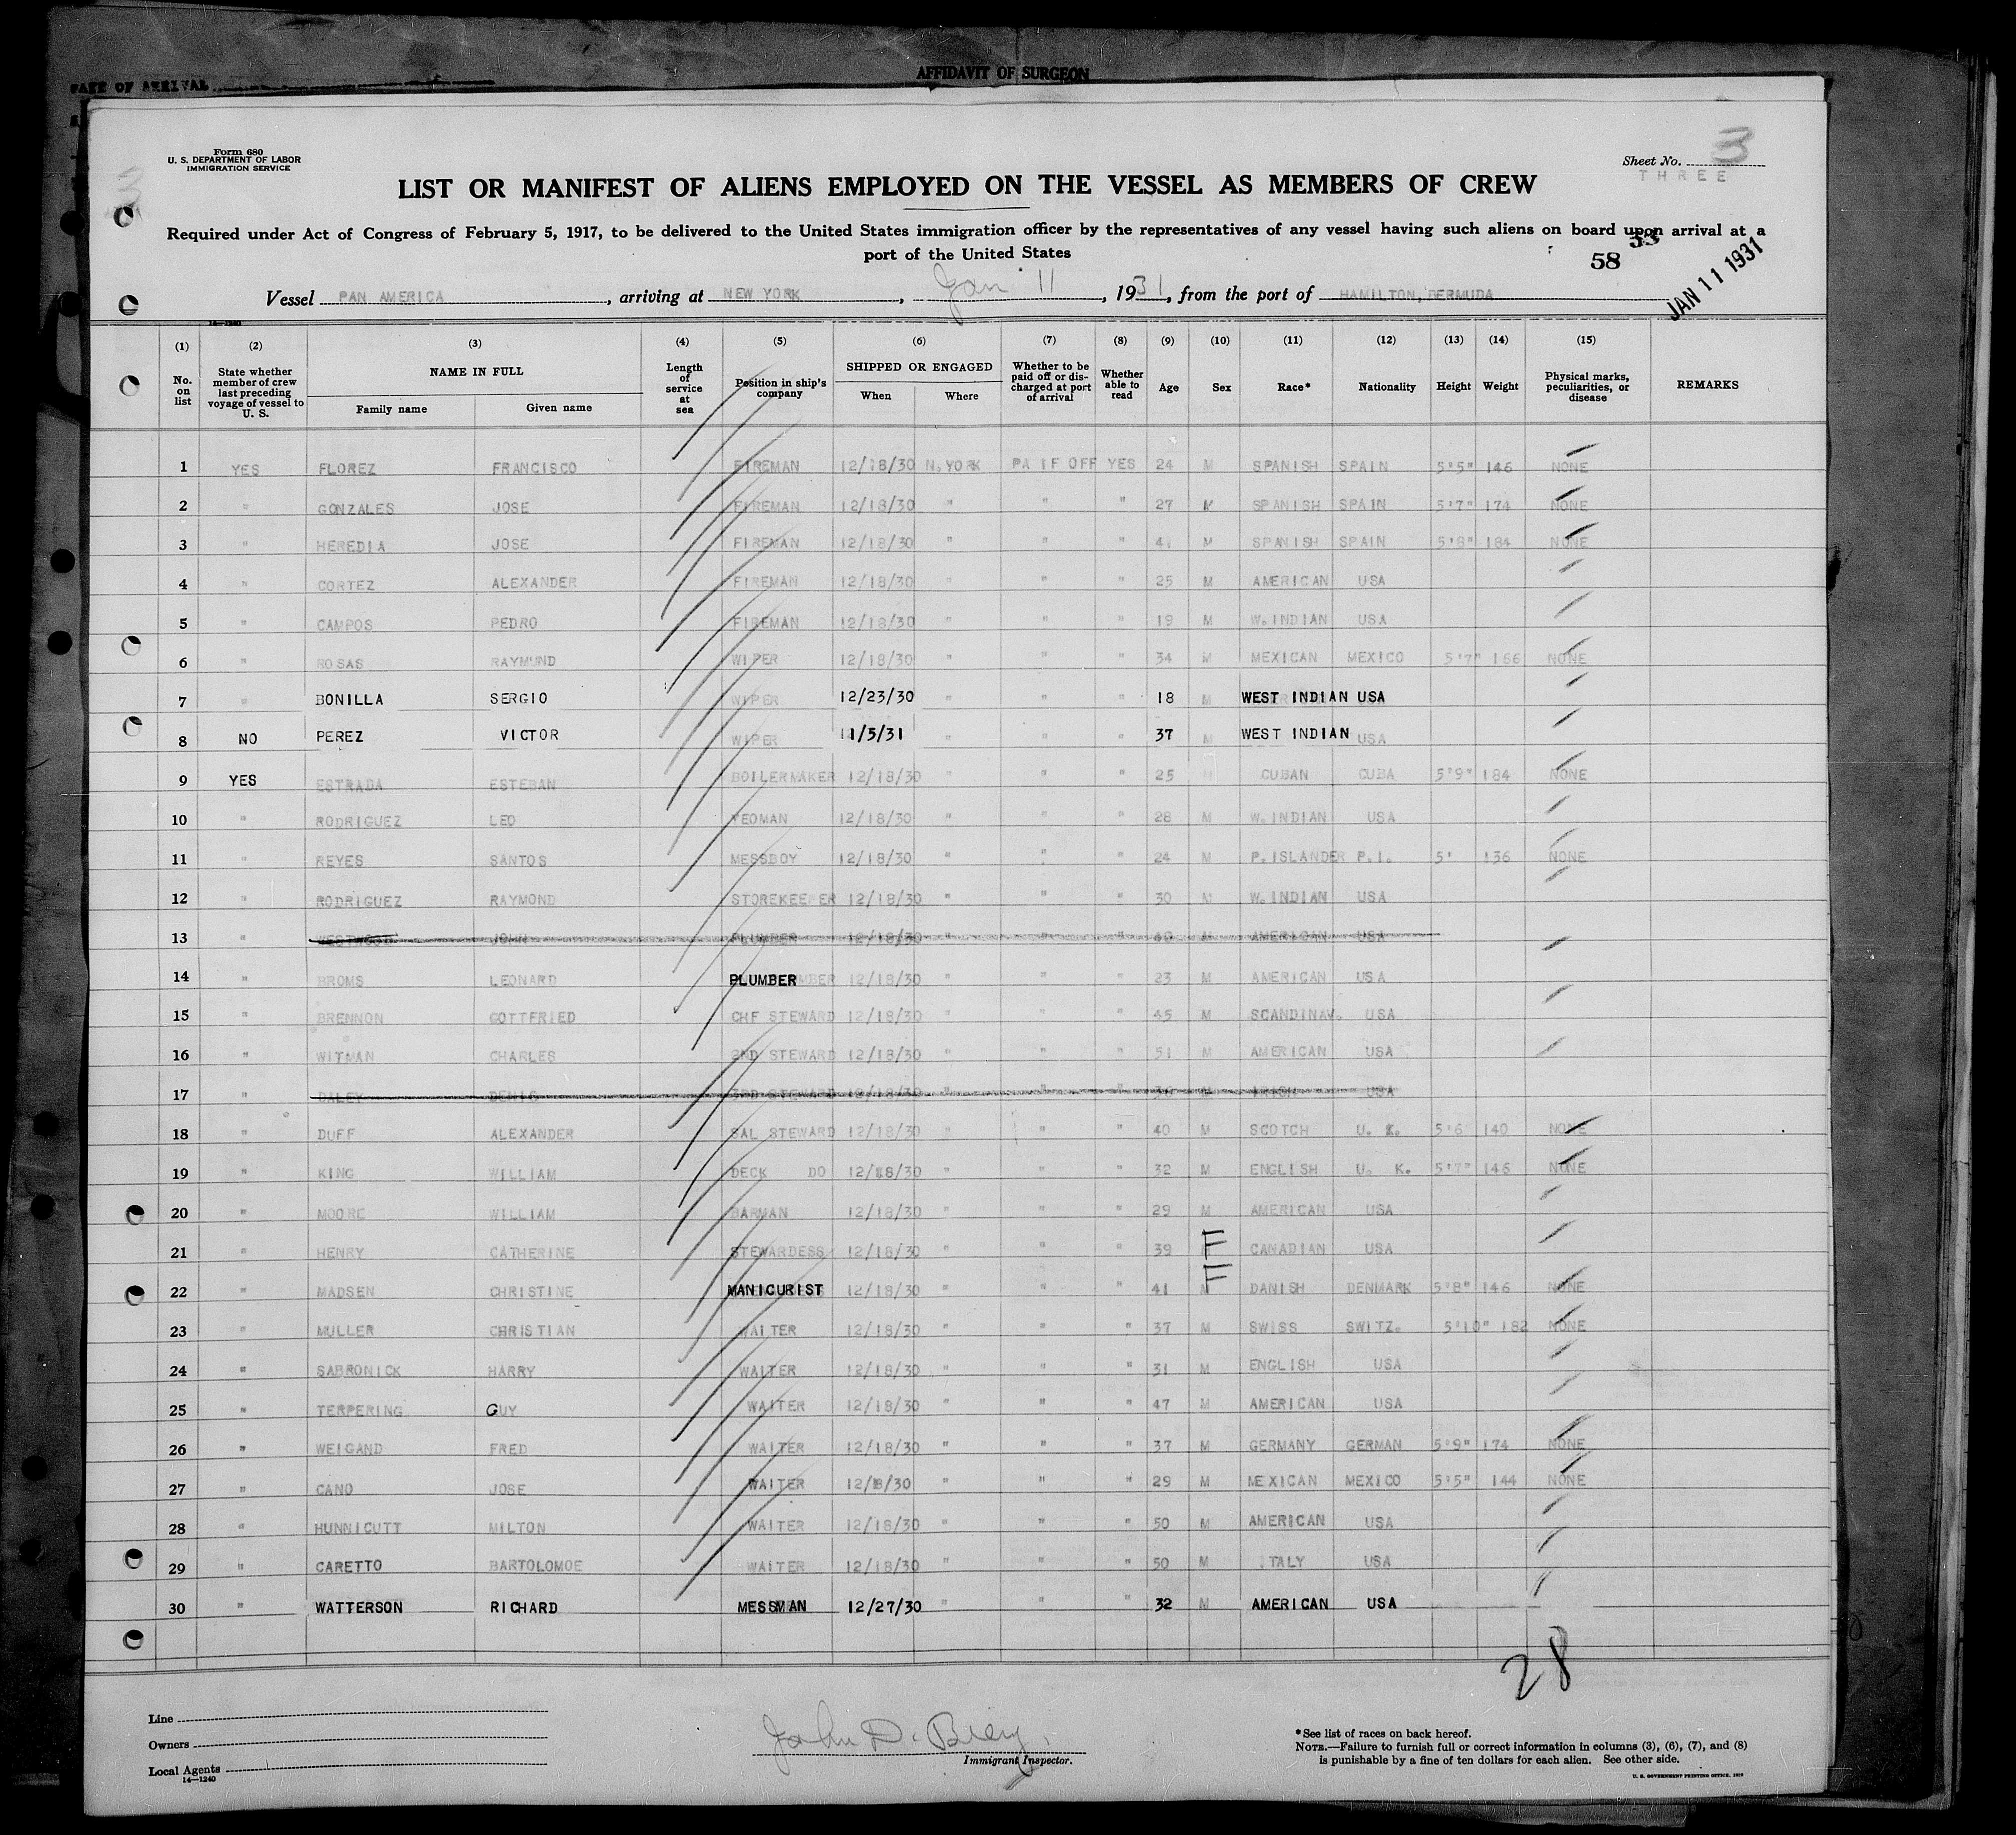 DATE OF ARRIVAL
AFFIDAVIT OF SURGEON
Form 680
U. S. DEPARTMENT OF LABOR
IMMIGRATION SERVICE
Sheet No. 3
THREE
3
LIST OR MANIFEST OF ALIENS EMPLOYED ON THE VESSEL AS MEMBERS OF CREW
Required under Act of Congress of February 5, 1917, to be delivered to the United States immigration officer by the representatives of any vessel having such aliens on board upon arrival at a
port of the United States
58
JAN 11 1931
Vessel PAN AMERICA, arriving at NEW YORK, Jan 11, 1931, from the port of HAMILTON, BERMUDA
14—1240
(1) (2) (3) (4) (5) (6) (7) (8) (9) (10) (11) (12) (13) (14) (15)
No. on list
State whether member of crew last preceding voyage of vessel to U. S.
NAME IN FULL
Family name Given name
Length of service at sea
Position in ship's company
SHIPPED OR ENGAGED
When Where
Whether to be paid off or discharged at port of arrival
Whether able to read
Age Sex Race* Nationality Height Weight
Physical marks, peculiarities, or disease
REMARKS
1 YES FLOREZ FRANCISCO FIREMAN 12/18/30 N.YORK PA IF OFF YES 24 M SPANISH SPAIN 5'5" 146 NONE
2 " GONZALES JOSE FIREMAN 12/18/30 " " " 27 M SPANISH SPAIN 5'7" 174 NONE
3 " HEREDIA JOSE FIREMAN 12/18/30 " " " 41 M SPANISH SPAIN 5'8" 184 NONE
4 " CORTEZ ALEXANDER FIREMAN 12/18/30 " " " 25 M AMERICAN USA
5 " CAMPOS PEDRO FIREMAN 12/18/30 " " " 19 M W.INDIAN USA
6 " ROSAS RAYMUND WIPER 12/18/30 " " " 34 M MEXICAN MEXICO 5'7" 166 NONE
7 " BONILLA SERGIO WIPER 12/23/30 " " " 18 M WEST INDIAN USA
8 NO PEREZ VICTOR WIPER 11/5/31 " " " 37 M WEST INDIAN USA
9 YES ESTRADA ESTEBAN BOILERMAKER 12/18/30 " " " 25 M CUBAN CUBA 5'9" 184 NONE
10 " RODRIGUEZ LEO YEOMAN 12/18/30 " " " 28 M W.INDIAN USA
11 " REYES SANTOS MESSBOY 12/18/30 " " " 24 M P.ISLANDER P.I. 5' 136 NONE
12 " RODRIGUEZ RAYMOND STOREKEEPER 12/18/30 " " " 30 M W.INDIAN USA
13 " WESTWOOD JOHN PLUMBER 12/18/30 " " " 40 M AMERICAN USA
14 " BROMS LEONARD PLUMBER 12/18/30 " " " 23 M AMERICAN USA
15 " BRENNON GOTTFRIED CHF STEWARD 12/18/30 " " " 45 M SCANDINAV. USA
16 " WITMAN CHARLES 2ND STEWARD 12/18/30 " " " 51 M AMERICAN USA
17 " DALEY DENIS 3RD STEWARD 12/18/30 " " " M IRISH USA
18 " DUFF ALEXANDER SAL STEWARD 12/18/30 " " " 40 M SCOTCH U. K. 5'6 140 NONE
19 " KING WILLIAM DECK DO 12/18/30 " " " 32 M ENGLISH U. K. 5'7" 146 NONE
20 " MOORE WILLIAM BARMAN 12/18/30 " " " 29 M AMERICAN USA
21 " HENRY CATHERINE STEWARDESS 12/18/30 " " " 39 F CANADIAN USA
22 " MADSEN CHRISTINE MANICURIST 12/18/30 " " " 41 F DANISH DENMARK 5'8" 146 NONE
23 " MULLER CHRISTIAN WAITER 12/18/30 " " " 37 M SWISS SWITZ. 5'10" 182 NONE
24 " SABRONICK HARRY WAITER 12/18/30 " " " 31 M ENGLISH USA
25 " TERPERING GUY WAITER 12/18/30 " " " 47 M AMERICAN USA
26 " WEIGAND FRED WAITER 12/18/30 " " " 37 M GERMANY GERMAN 5'9" 174 NONE
27 " CANO JOSE WAITER 12/18/30 " " " 29 M MEXICAN MEXICO 5'5" 144 NONE
28 " HUNNICUTT MILTON WAITER 12/18/30 " " " 50 M AMERICAN USA
29 " CARETTO BARTOLOMOE WAITER 12/18/30 " " " 50 M ITALY USA
30 " WATTERSON RICHARD MESSMAN 12/27/30 " " " 32 M AMERICAN USA
28
Line
Owners
Local Agents
14—1240
John D. Biery.
Immigrant Inspector.
*See list of races on back hereof.
NOTE.—Failure to furnish full or correct information in columns (3), (6), (7), and (8)
is punishable by a fine of ten dollars for each alien. See other side.
U. S. GOVERNMENT PRINTING OFFICE. 1929